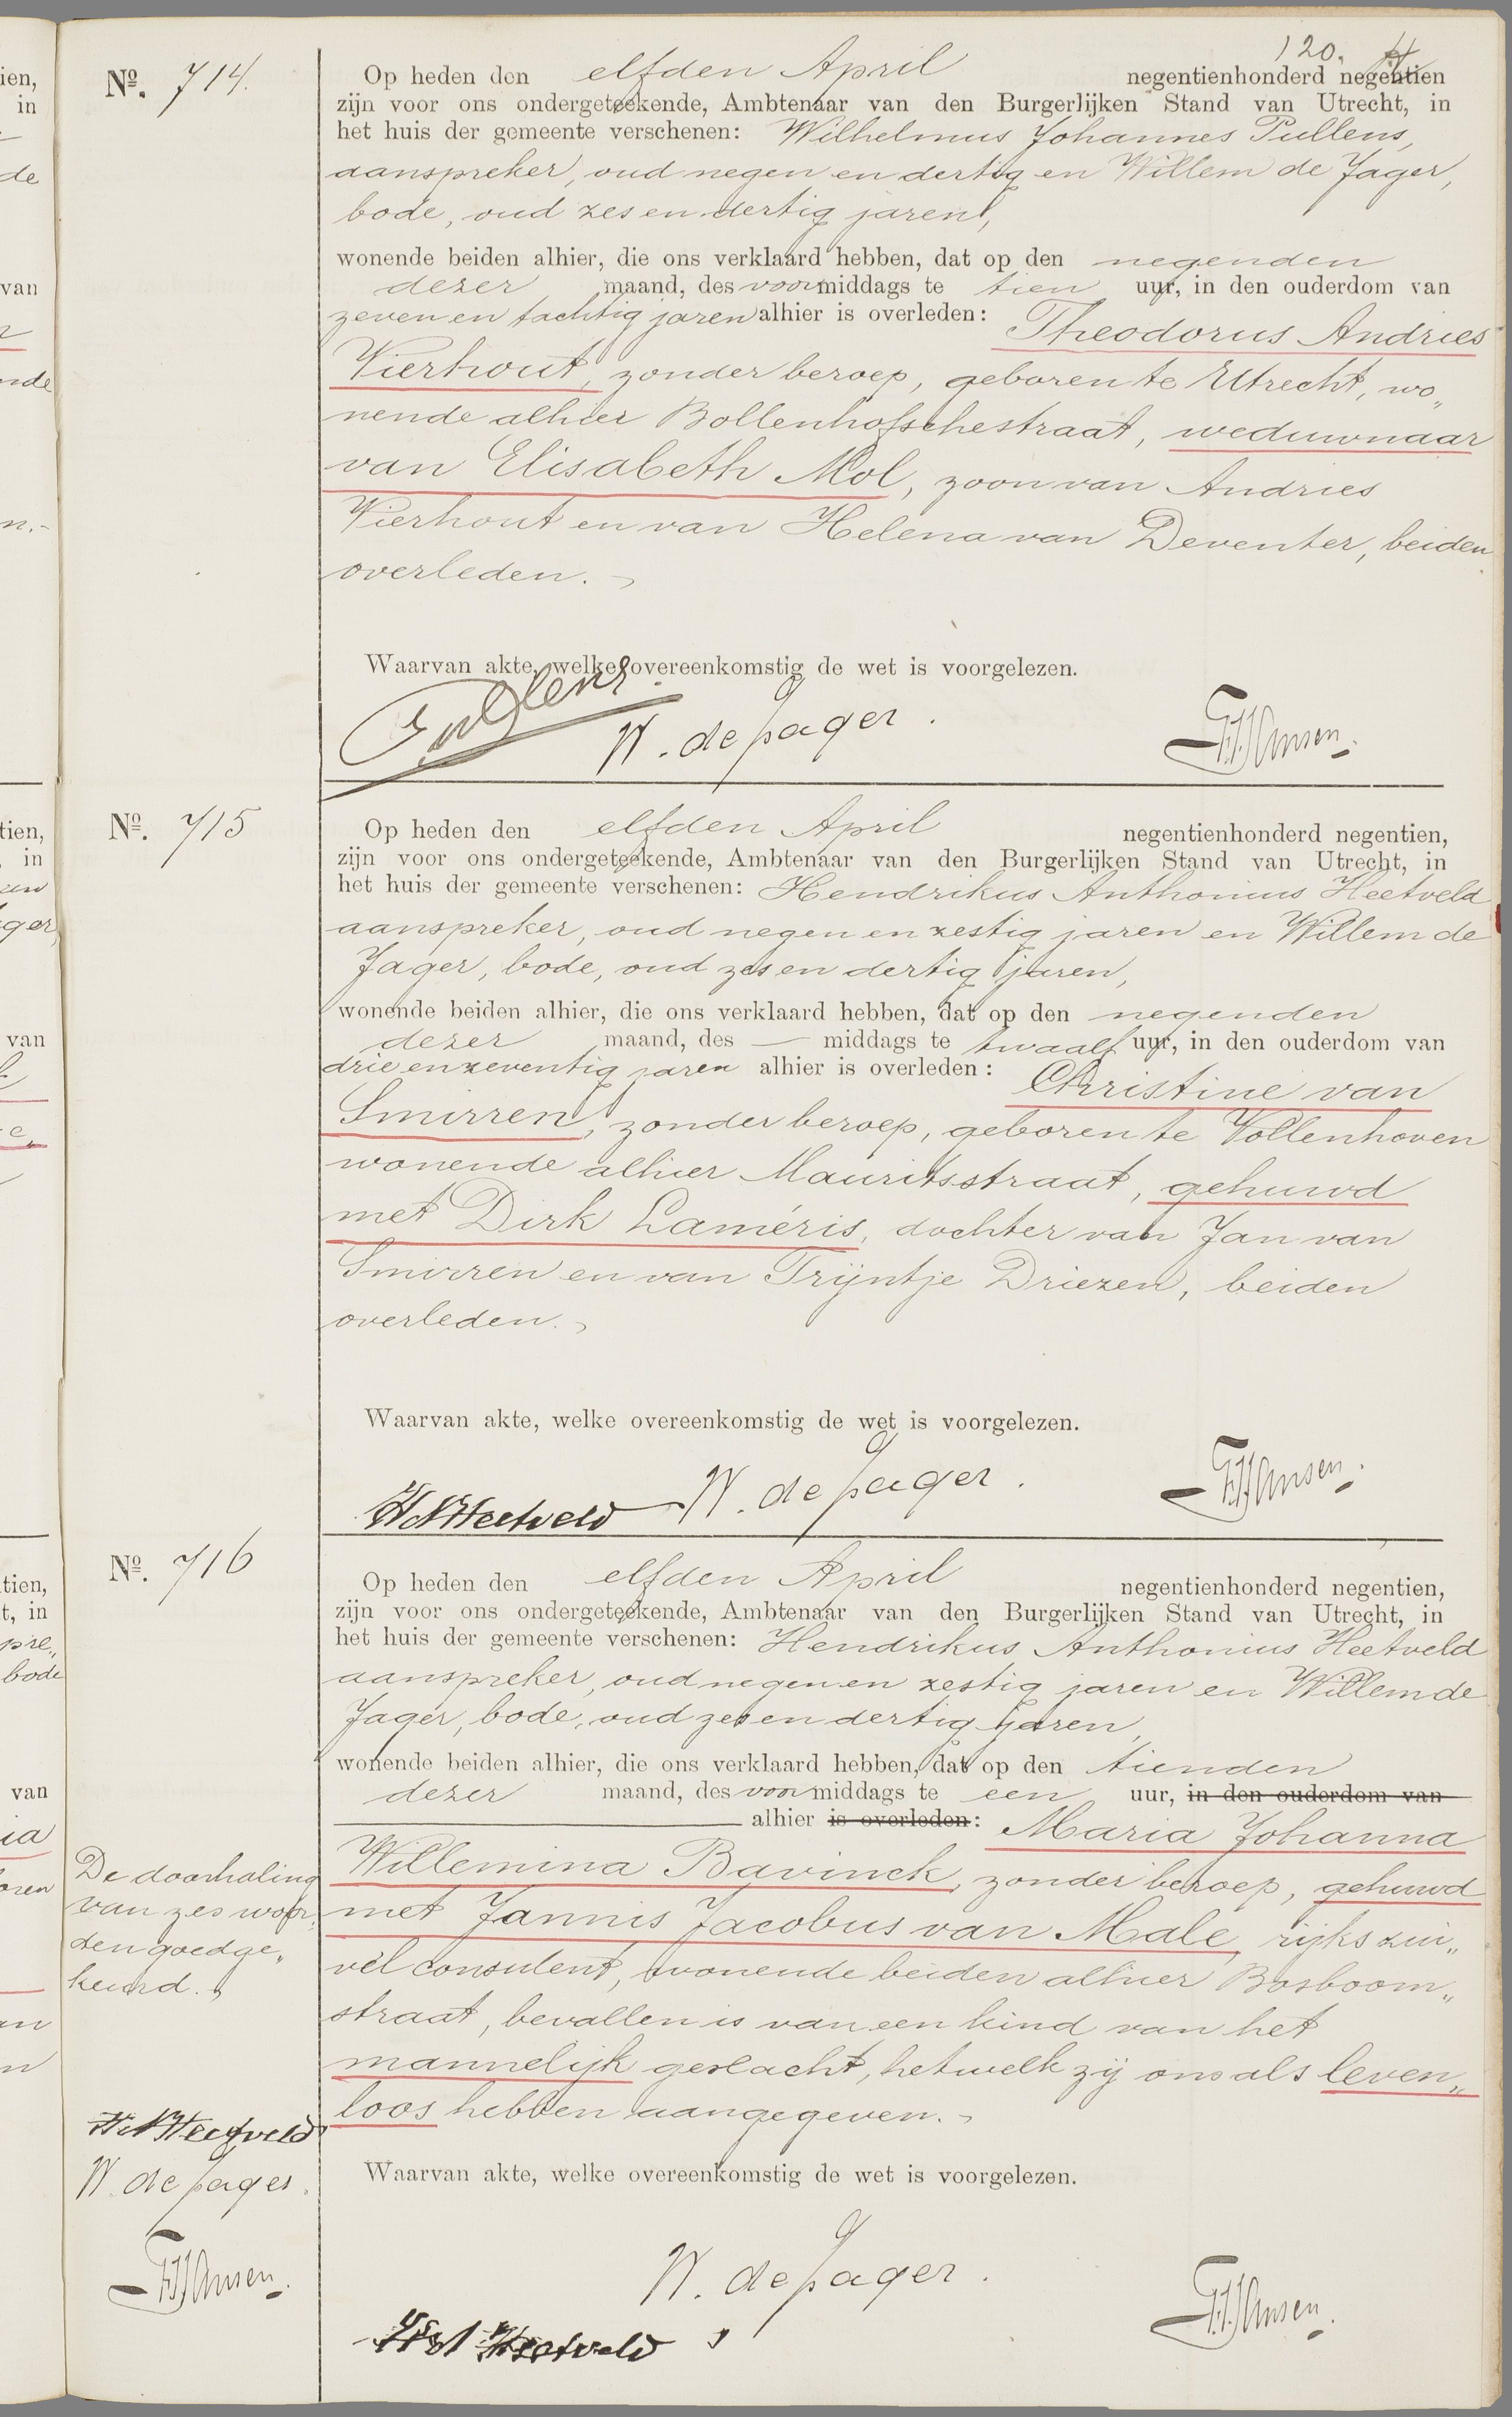 120.
Nº. 714.
Op heden den elfden April negentienhonderd negentien
zijn voor ons ondergeteekende, Ambtenaar van den Burgerlijken Stand van Utrecht, in
het huis der gemeente verschenen: Wilhelmus Johannes Pullens,
aanspreker, oud negen en dertig en Willem de Jager,
bode, oud zes en dertig jaren,
wonende beiden alhier, die ons verklaard hebben, dat op den negenden
dezer maand, des voormiddags te tien uur, in den ouderdom van
zeven en tachtig jaren alhier is overleden: Theodorus Andries
Vierhout, zonder beroep, geboren te Utrecht, wo„
nende alhier Bollenhofschestraat, weduwnaar
van Elisabeth Mol, zoon van Andries
Vierhout en van Helena van Deventer, beiden
overleden.
Waarvan akte, welke overeenkomstig de wet is voorgelezen.
Pullens. W. de Jager. Jansen.
Nº. 715
Op heden den elfden April negentienhonderd negentien,
zijn voor ons ondergeteekende, Ambtenaar van den Burgerlijken Stand van Utrecht, in
het huis der gemeente verschenen: Hendrikus Anthonius Heetveld
aanspreker, oud negen en zestig jaren en Willem de
Jager, bode, oud zes en dertig jaren,
wonende beiden alhier, die ons verklaard hebben, dat op den negenden
dezer maand, des — middags te twaalf uur, in den ouderdom van
drie en zeventig jaren alhier is overleden: Christine van
Smirren, zonder beroep, geboren te Vollenhoven
wonende alhier Mauritsstraat, gehuwd
met Dirk Laméris, dochter van Jan van
Smirren en van Trijntje Driezen, beiden
overleden.
Waarvan akte, welke overeenkomstig de wet is voorgelezen.
HA Heetveld W. de Jager. Jansen.
Nº. 716
Op heden den elfden April negentienhonderd negentien,
zijn voor ons ondergeteekende, Ambtenaar van den Burgerlijken Stand van Utrecht, in
het huis der gemeente verschenen: Hendrikus Anthonius Heetveld
aanspreker, oud negen en zestig jaren en Willem de
Jager, bode, oud zes en dertig jaren,
wonende beiden alhier, die ons verklaard hebben, dat op den tienden
dezer maand, des voormiddags te een uur, in den ouderdom van
alhier is overleden: Maria Johanna
Willemina Bavinck, zonder beroep, gehuwd
met Jannis Jacobus van Male, rijks zui„
vel consulent, wonende beiden alhier Bosboom„
straat, bevallen is van een kind van het
mannelijk geslacht, hetwelk zij ons als leven„
loos hebben aangegeven.
Waarvan akte, welke overeenkomstig de wet is voorgelezen.
W. de Jager. Jansen.
HA Heetveld
De doorhaling
van zes woor„
den goedge„
keurd.
HA Heetveld
W. de Jager.
Jansen.